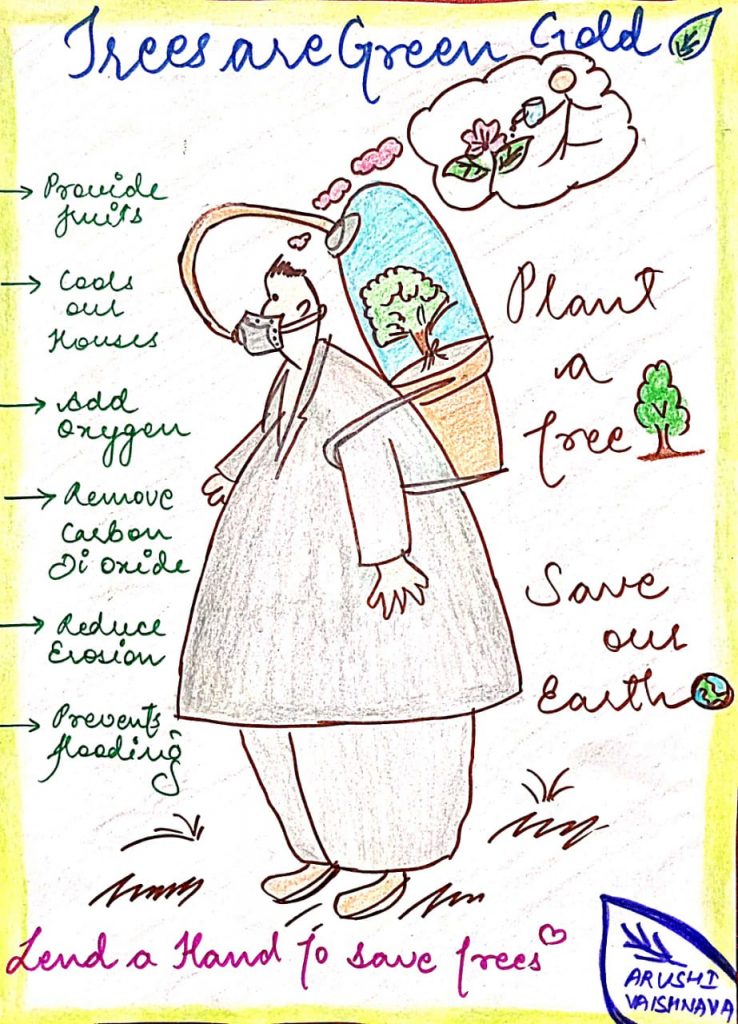 Trees are Green Gold
→ Provide
fruits
→ Cools
our
Houses
→ Add
Oxygen
→ Remove
Carbon
Di Oxide
→ Reduce
Erosion
→ Prevents
flooding
Plant
a
tree
Save
our
Earth
Lend a Hand To save trees
ARUSHI
VAISHNAVA